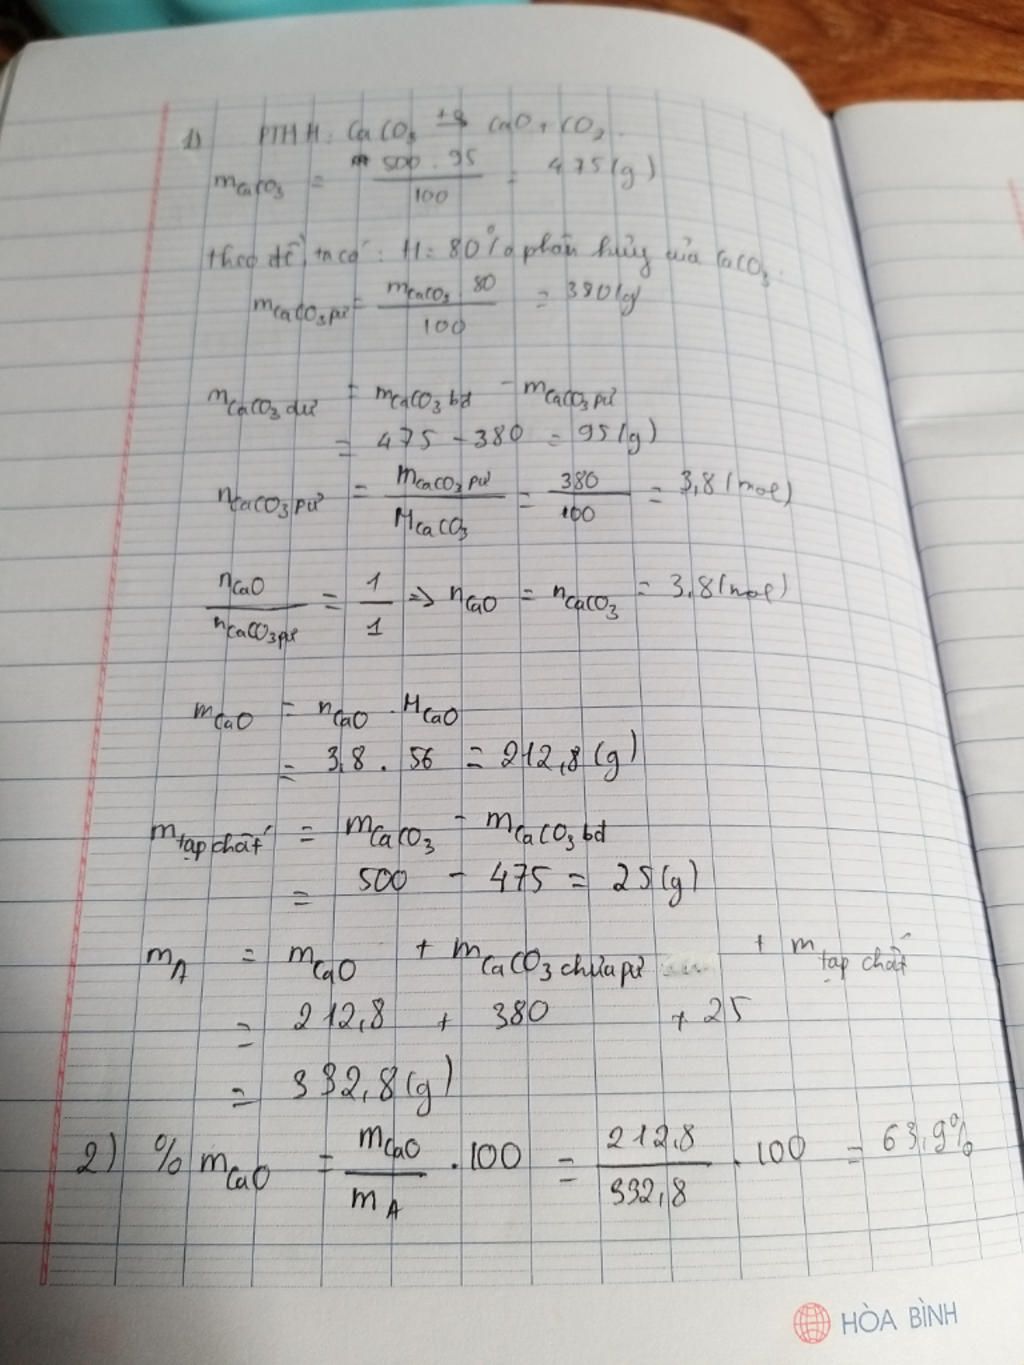 1) PTHH: CaCO₃ t° → CaO + CO₂.
mCaCO₃ = 500 . 95 / 100 = 475 (g)
theo đề, ta có: H = 80% phân hủy của CaCO₃.
mCaCO₃pứ = mCaCO₃ 80 / 100 = 380 (g)
mCaCO₃ dư = mCaCO₃ bđ - mCaCO₃ pứ
= 475 - 380 = 95 (g)
nCaCO₃ pứ = mCaCO₃ pứ / MCaCO₃ = 380 / 100 = 3,8 (mol)
nCaO / nCaCO₃pứ = 1 / 1 => nCaO = nCaCO₃ = 3,8 (mol)
mCaO = nCaO . MCaO
= 3,8 . 56 = 212,8 (g)
mtạp chất = mCaCO₃ - mCaCO₃ bđ
= 500 - 475 = 25 (g)
mA = mCaO + mCaCO₃ chưa pứ + mtạp chất
= 212,8 + 380 + 25
= 332,8 (g)
2) % mCaO = mCaO / mA . 100 = 212,8 / 332,8 . 100 = 63,9%
HÒA BÌNH